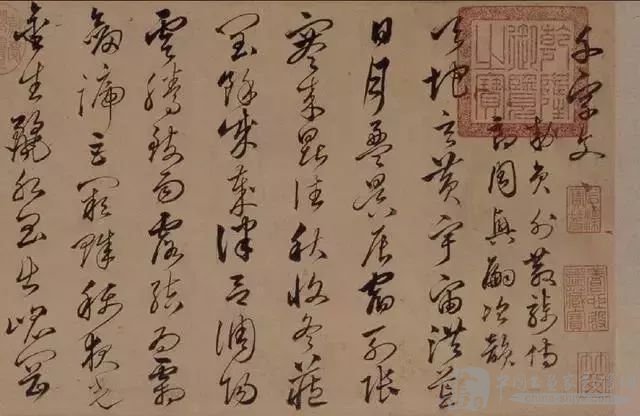 千字文
敕員外散騎侍
郎周興嗣次韻
天地玄黃宇宙洪荒
日月盈昃辰宿列張
寒來暑往秋收冬藏
閏餘成歲律呂調陽
雲騰致雨露結為霜
劍號巨闕珠稱夜光
金生麗水玉出崐岡
乾隆御覽之寶